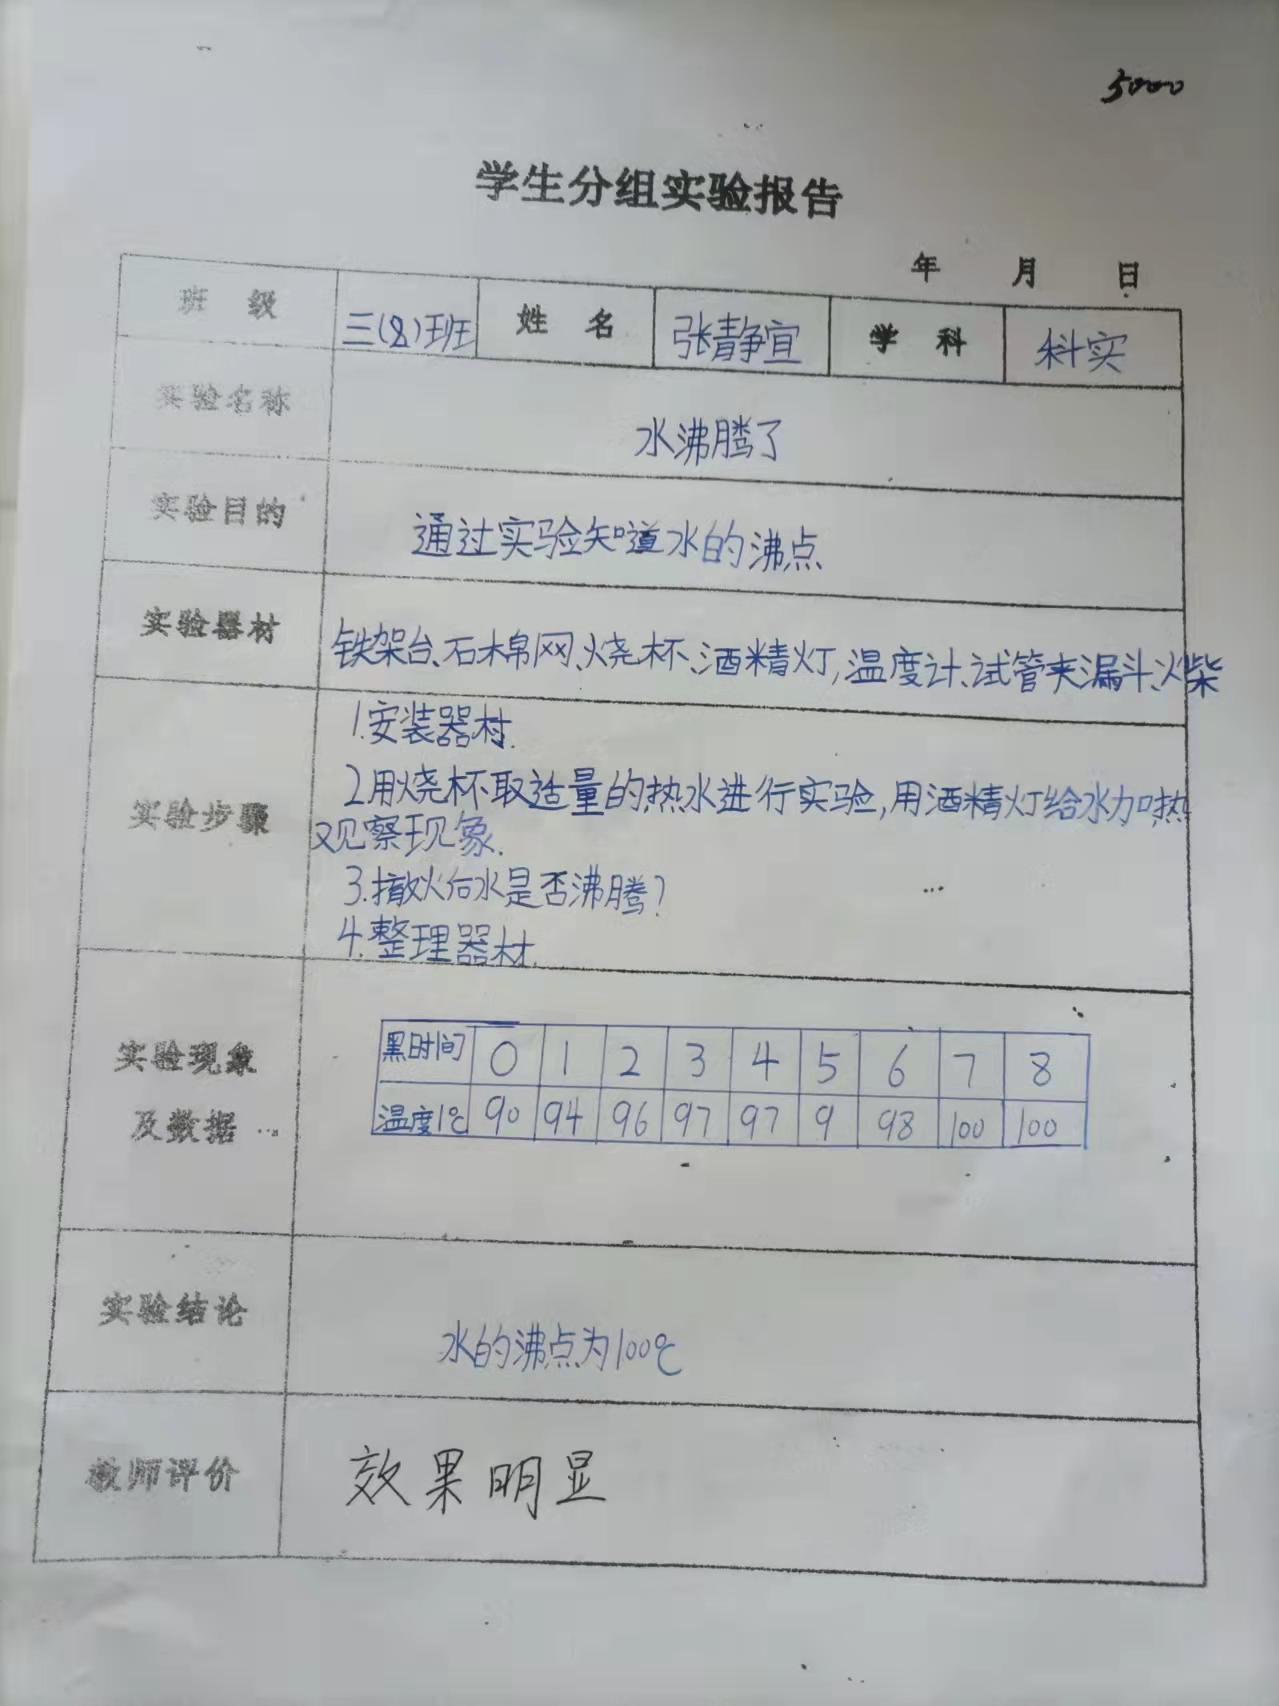 5000
学生分组实验报告
年 月 日
班 级 三(8)班 姓 名 张静宜 学 科 科实
实验名称 水沸腾了
实验目的 通过实验知道水的沸点
实验器材 铁架台、石棉网、烧杯、酒精灯,温度计、试管夹漏斗、火柴
实验步骤
1.安装器材.
2用烧杯取适量的热水进行实验,用酒精灯给水加热
观察现象.
3.撤火后水是否沸腾?
4.整理器材.
实验现象
及数据
时间 0 1 2 3 4 5 6 7 8
温度1℃ 90 94 96 97 97 9 98 100 100
实验结论 水的沸点为100℃
教师评价 效果明显